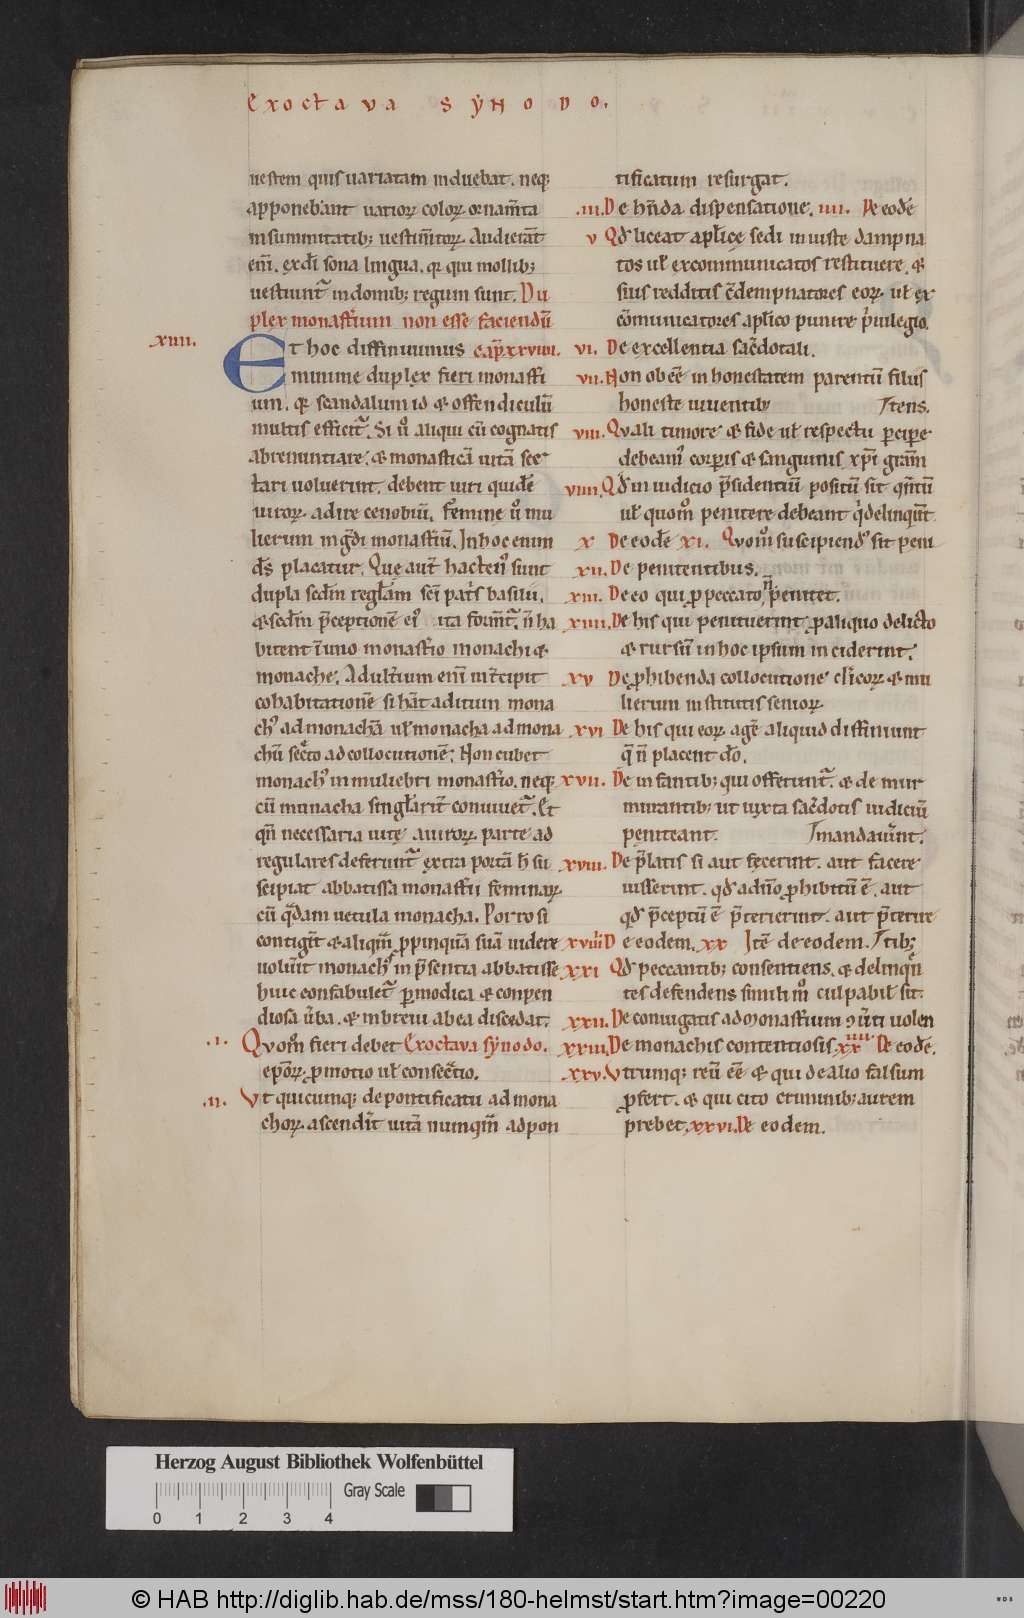 Ex octava synodo.
uestem quis uariatam induebat. neq;
apponebant uatioꝝ coloꝝ ornam̄ta
in summitatib; uestim̄toꝝ. Audierāt
eni͂. ex dī sona lingua. qꝛ qui mollib;
uestiunt᷑ in domib; regum sunt. Du
plex monast̄ium non esse faciendū
xiiii.
Et hoc diffinuimus cap̄ xxviiii.
minime duplex fieri monasti
um. qꝛ scandalum id & offendiculū
multis efficit᷑. Si u͛o aliqui cū cognatis
abrenuntiare. & monasticā uitā sec
tari uoluerint. debent uiri quidē
uiroꝝ adire cenobiū. Femine u͛o mu
lierum ingd̄i monast̄iū. In hoc enim
d̄s placatur. Que aut̄ hacten᷒ sunt
dupla sc̄dm regl̄am sc̄i pat̄s basilii.
& sc̄dm p̄ceptionē ei᷒ ita form̄t᷑. n̄ ha
bitent in uno monast̄io monachi &
monache. Adult̄ium eni͂ int̄cipit
cohabitationē. si hāt aditum mona
ch᷒ ad monachā ul̄ monacha ad mona
chū sec̄to ad collocutionē. Non cubet
monach᷒ in muliebri monast̄io. neq;
cū munacha singl̄arit̄ conuiuet᷑. Et
qn̄ necessaria uitę a uiroꝝ parte ad
regulares deferunt᷑ extra portā h̄ su
scipiat abbatissa monast̄ii feminaꝝ
cū q̄dam uetula monacha. Porro si
contigit̄ & aliqm̄ ꝓpinquā suā uidere
uolu͛it monach᷒ in p̄sentia abbatisse
huic confabulet᷑ ꝑ modica & conpen
diosa u͛ba. & in breui ab ea discedat.
.i. Quom̄ fieri debet Ex octava synodo.
ep̄oꝝ ꝓmotio ul̄ consec̄tio.
.ii. Ut quicunq; de pontificatu ad mona
choꝝ ascendit̄ uitā nunqm̄ ad pon
tificatum resurgat.
.iii. De hn̄da dispensatione. iiii. De eodē
v Qd̄ liceat apl̄ice sedi iniuste dampna
tos ul̄ excommunicatos restituere. &
suis redditis c̄dempnatores eoꝝ ul̄ ex
cōmunicatores apl̄ico punire p̄iuilegio.
vi. De excellentia sac̄dotali.
vii. Non ob eē inhonestatem parentū filiis
honeste uiuentib; tens.
viii. Quali timore & fide ul̄ respectu ꝑcipe
debeam᷒ corporis & sanguinis xp̄i grām
viiii. Qd̄ in iudicio p̄sidentiū positū sit qn̄tū
ul̄ quom̄ penitere debeant q̄ delinqu̅t
x De eodē xi. Quom̄ suscipiend᷒ sit peni
xii. De penitentibus.
xiii. De eo qui ꝓ peccato n̄ penitet.
xiiii. De his qui penituerint ꝓ aliquo delicto
& rursū in hoc ipsum inciderint.
xv De ꝓhibenda collocutione cl̄icoꝝ & mu
lierum institutis senioꝝ.
xvi De his qui eoꝝ agē aliquid diffiniunt
q̄ n̄ placent d̄o.
xvii. De infantib; qui offerunt᷑. & de mur
murantib; ut iuxta sac̄dotis iudiciū
peniteant. mandau͛int.
xviii. De p̄latis si aut fecerint. aut facere
iusserint. qd̄ a dn̄o ꝓhibitū ē. aut
qd̄ p̄ceptū ē p̄terierint. aut p̄terire
xviiii De eodem. xx Itē de eodem. tib;
xxi Qd̄ peccantib; consentiens. & delinquē
tes defendens simili m̊ culpabil̄ sit.
xxii. De coniugatis ad monast̄ium ꝯu͛ti uolen
xxiii. De monachis contentiosis. xxiiii De eodē.
xxv. Utrumq; reū eē & qui de alio falsum
ꝓfert. & qui cito criminib; aurem
prebet. xxvi. De eodem.
Herzog August Bibliothek Wolfenbüttel
Gray Scale
0 1 2 3 4
© HAB http://diglib.hab.de/mss/180-helmst/start.htm?image=00220